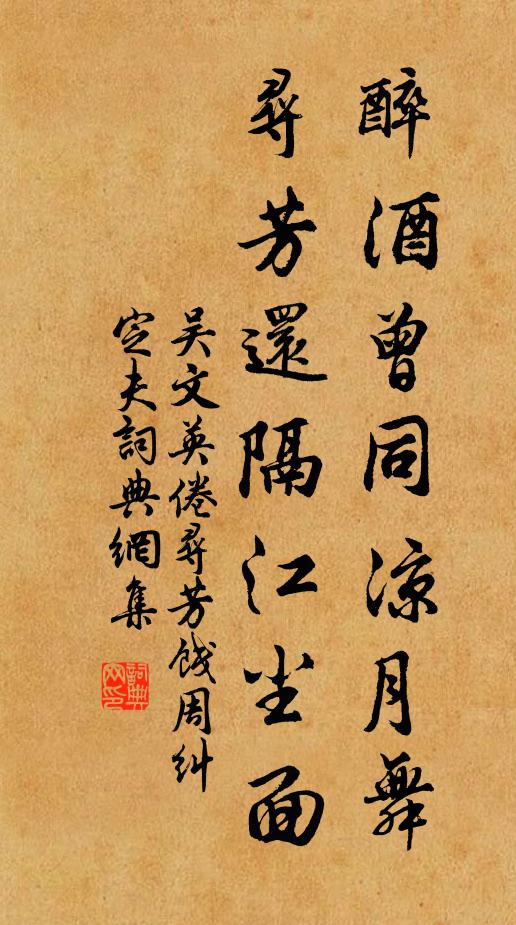 醉酒曾同涼月舞
尋芳還隔江尘面
吴文英倦尋芳餞周糾
定夫詞典網集
詞典
网印